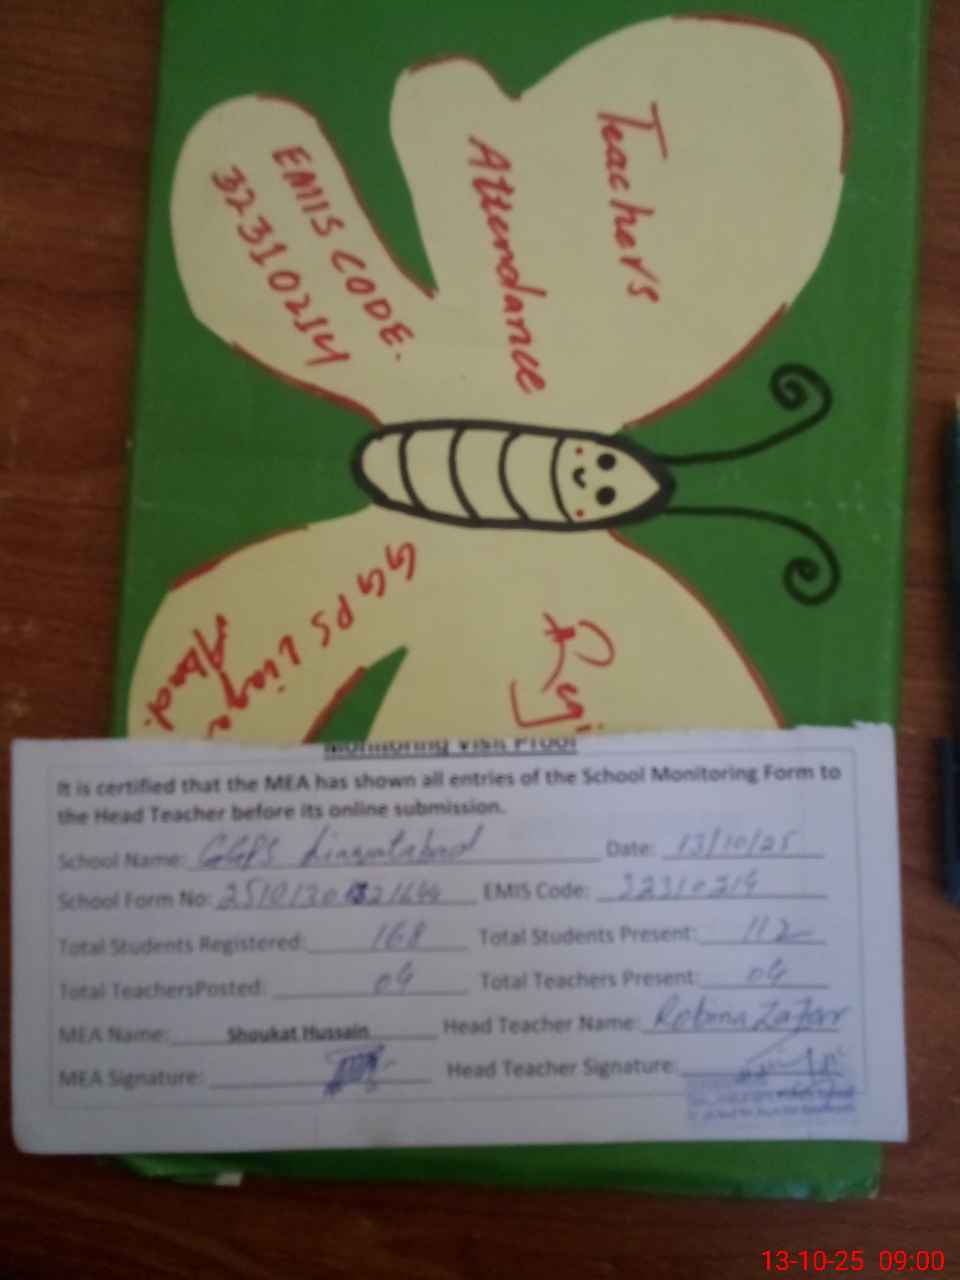 Teachers
Attendance
EMIS CODE.
32310214
GGPS Liaqat
Abad.
Monitoring Visit Proof
It is certified that the MEA has shown all entries of the School Monitoring Form to
the Head Teacher before its online submission.
School Name: GGPS Liaqatabad Date: 13/10/25
School Form No: EMIS Code: 32310214
Total Students Registered: 168 Total Students Present: 112
Total TeachersPosted: 04 Total Teachers Present: 04
MEA Name: Shoukat Hussain Head Teacher Name: Robina Zafar
MEA Signature: Head Teacher Signature:
13-10-25 09:00